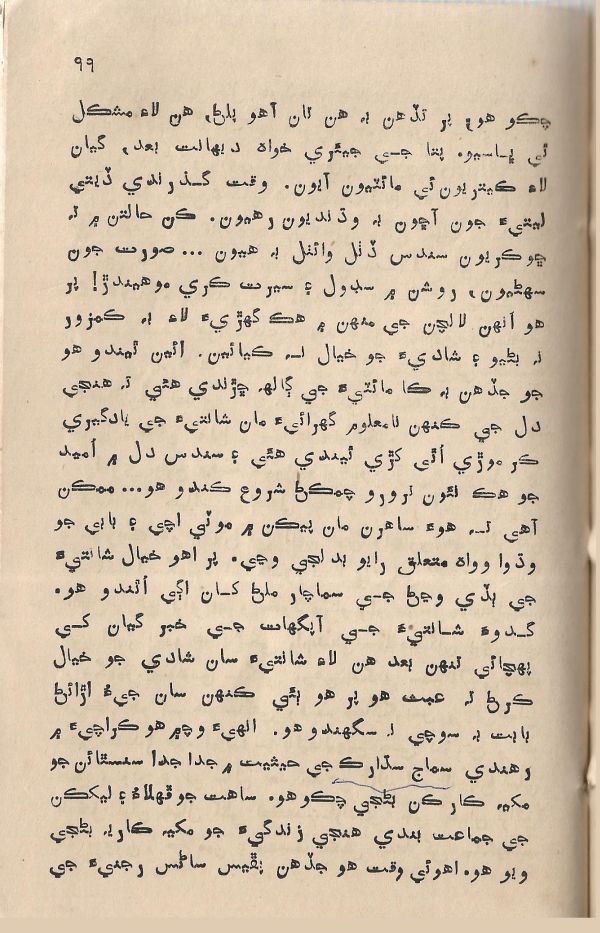 ۹۹
چڪو هو، پر تڏهن بہ هن تان آهو پلڻ، هن لاءِ مشڪل
ئي ڀاسيو. پتا جي جيئري خواه ديهانت بعد، گيان
لاءِ ڪيتريون ئي مائٽيون آيون. وقت گذرندي ڏيتي
ليتيءَ جون آڇون بہ وڌنديون رهيون. ڪن حالتن ۾ تہ
ڇوڪريون سندس ڏٺل وائٺل بہ هيون ... صورت جون
سهڻيون، روشن ۾ سڊول ۽ سيرت ڪري موهيندڙ! پر
هو انهن لالچن جي منهن ۾ هڪ گهڙيءَ لاءِ بہ ڪمزور
نہ بڻيو ۽ شاديءَ جو خيال نہ ڪيائين. ائين ٿيندو هو
جو جڏهن بہ ڪا مائٽيءَ جي ڳالهہ ڇڙندي هئي تہ هنجي
دل جي ڪنهن نامعلوم گهرائيءَ مان شانتيءَ جي يادگيري
ڪر موڙي اُٿي کڙي ٿيندي هئي ۽ سندس دل ۾ اُميد
جو هڪ نئون تورو چمڪڻ شروع ڪندو هو... ممڪن
آهي تہ هوءَ ساهرن مان پيڪن ۾ موٽي اچي ۽ ٻاٻي جو
وڌوا وواهہ متعلق رايو بدلجي وڃي. پر اهو خيال شانتيءَ
جي ٻڏي وڃڻ جي سماچار ملڻ کان اڳي اُٿندو هو.
گدوءَ شانتيءَ جي آپگهات جي خبر گيان کي
پهچائي تنهن بعد هن لاءِ شانتيءَ سان شادي جو خيال
ڪرڻ تہ عبث هو پر هو ٻئي ڪنهن سان جيءُ اڙائڻ
بابت بہ سوچي نہ سگهندو هو. انهيءَ وچ ۾ هو ڪراچيءَ ۾
رهندي سماج سڌارڪ جي حيثيت ۾ جدا جدا سنسٿائن جو
مکيہ ڪارڪن بڻجي چڪو هو. ساهت جو ڦهلاءُ ۽ ليکڪن
جي جماعت بندي هنجي زندگيءَ جو مکيہ ڪاريہ بڻجي
ويو هو. اهوئي وقت هو جڏهن بقيس سائنس رجنيءَ جي